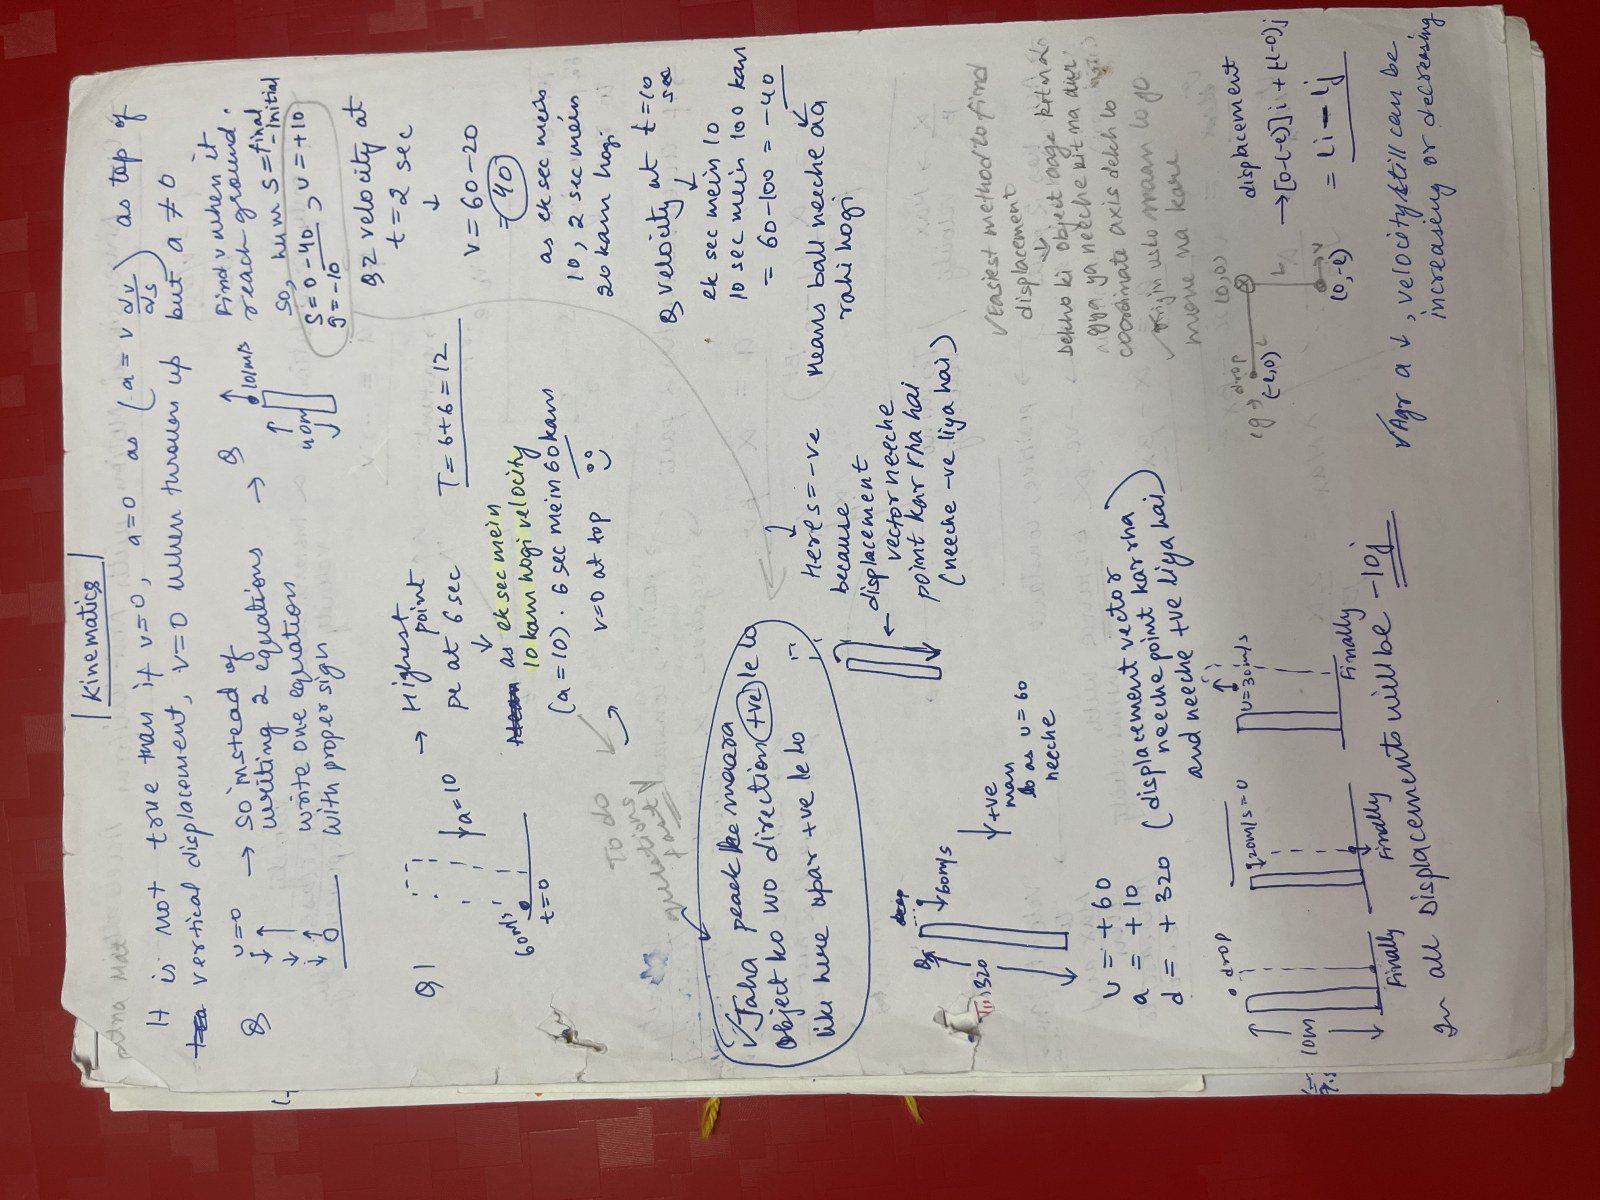 Kinematics
It is not true than if v=0, a=0 as (a = v dv/ds) as top of
vertical displacement, v=0 when thrown up but a ≠ 0
Q
u=0
→ so instead of
writing 2 equations
write one equation
with proper sign
→ Q
40m
10m/s
Find v when it
reach ground.
so, hum s = final - initial
s = 0-40, u = +10
g = -10
Q1
60m/s
t=0
a=10
→ Highest point
pe at 6 sec
↓
as ek sec mein
10 kam hogi velocity
(a=10). 6 sec mein 60 kam
v=0 at top
T = 6+6 = 12
Q2 velocity at
t = 2 sec
↓
v = 60-20
= 40
as ek sec mein
10, 2 sec mein
20 kam hogi
To do
questions
fast
Q velocity at t=10 sec
↓
ek sec mein 10
10 sec mein 100 kam
= 60-100 = -40
means ball neeche aa
rahi hogi
✓ Jaha peack ke maara
object ko wo direction +ve le lo
like here upar +ve le lo
Here s = -ve
because
displacement
vector neeche
point kar rha hai
(neeche -ve liya hai)
Q
320
drop
60m/s
+ve
maan
lo as u=60
neeche
u = +60
a = +10
d = +320 (displacement vector
neeche point kar rha
and neeche +ve liya hai)
✓ Easiest method to find
displacement
↓
Dekho ki object aage kitna
gya ya neeche kitna aur
coordinate axis dekh lo
✓ Origin usko maan lo go
move na kare
eg →
drop
(-l,0)
(0,0)
L
(0,-l)
v
displacement
→ [0-(-l)]i + (-l-0)j
= li - lj
10m
drop
Finally
20m/s = u
Finally
u=30m/s
Finally
In all Displacements will be -10j
✓ Agr a ↓, velocity still can be
increasing or decreasing